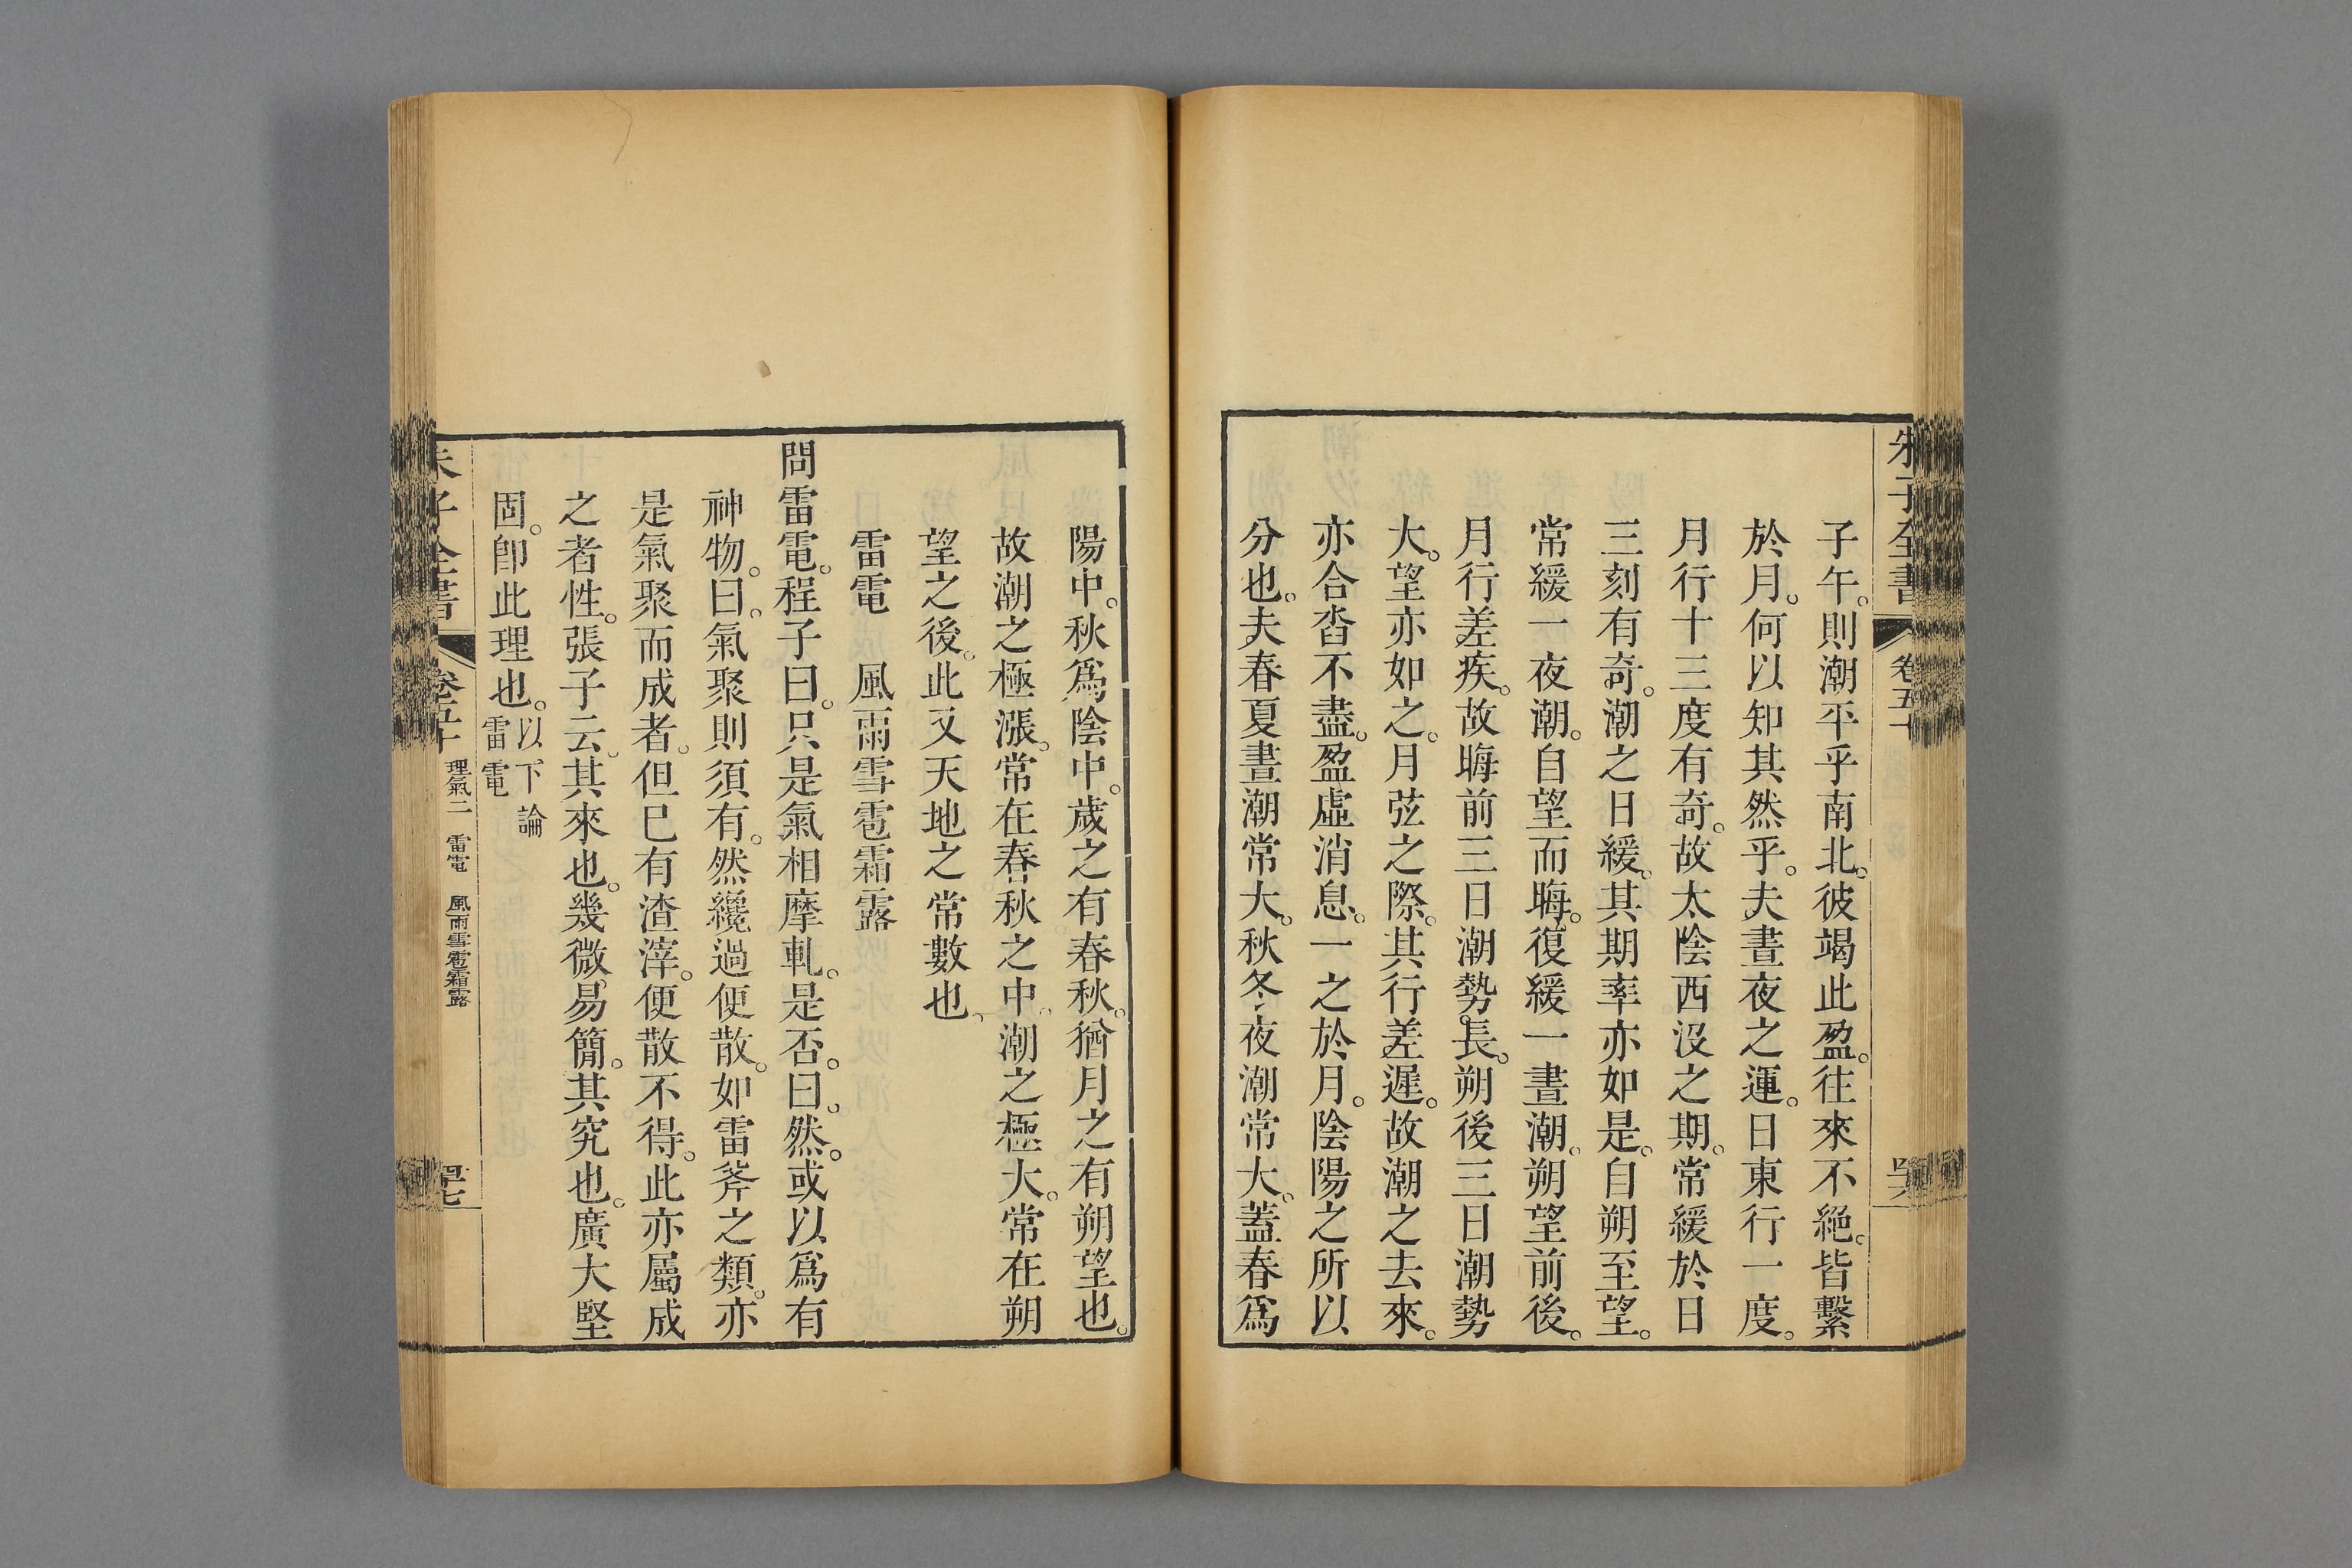 朱子全書 卷五十
子午。則潮平乎南北。彼竭此盈。往來不絕。皆繫
於月。何以知其然乎。夫晝夜之運。日東行一度。
月行十三度有奇。故太陰西沒之期。常緩於日
三刻有奇。潮之日緩。其期率亦如是。自朔至望。
常緩一夜潮。自望而晦。復緩一晝潮。朔望前後。
月行差疾。故晦前三日潮勢。長。朔後三日潮勢
大。望亦如之。月弦之際。其行差遲。故潮之去來。
亦合沓不盡。盈虛消息。一之於月。陰陽之所以
分也。夫春夏晝潮常大。秋冬夜潮常大。蓋春爲
陽中。秋爲陰中。歲之有春秋。猶月之有朔望也。
故潮之極漲。常在春秋之中。潮之極大。常在朔
望之後。此又天地之常數也。
雷電 風雨雪雹霜露
問雷電。程子曰。只是氣相摩軋。是否。曰。然。或以爲有
神物。曰。氣聚則須有。然纔過便散。如雷斧之類。亦
是氣聚而成者。但已有渣滓。便散不得。此亦屬成
之者性。張子云。其來也。幾微。易簡。其究也。廣大堅
固。卽此理也。以下論
雷電
朱子全書 卷五十 理氣二 雷電 風雨雪雹霜露